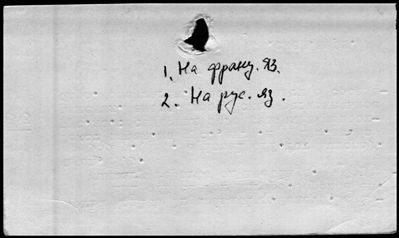 1. На франц. яз.
2. На рус. яз.